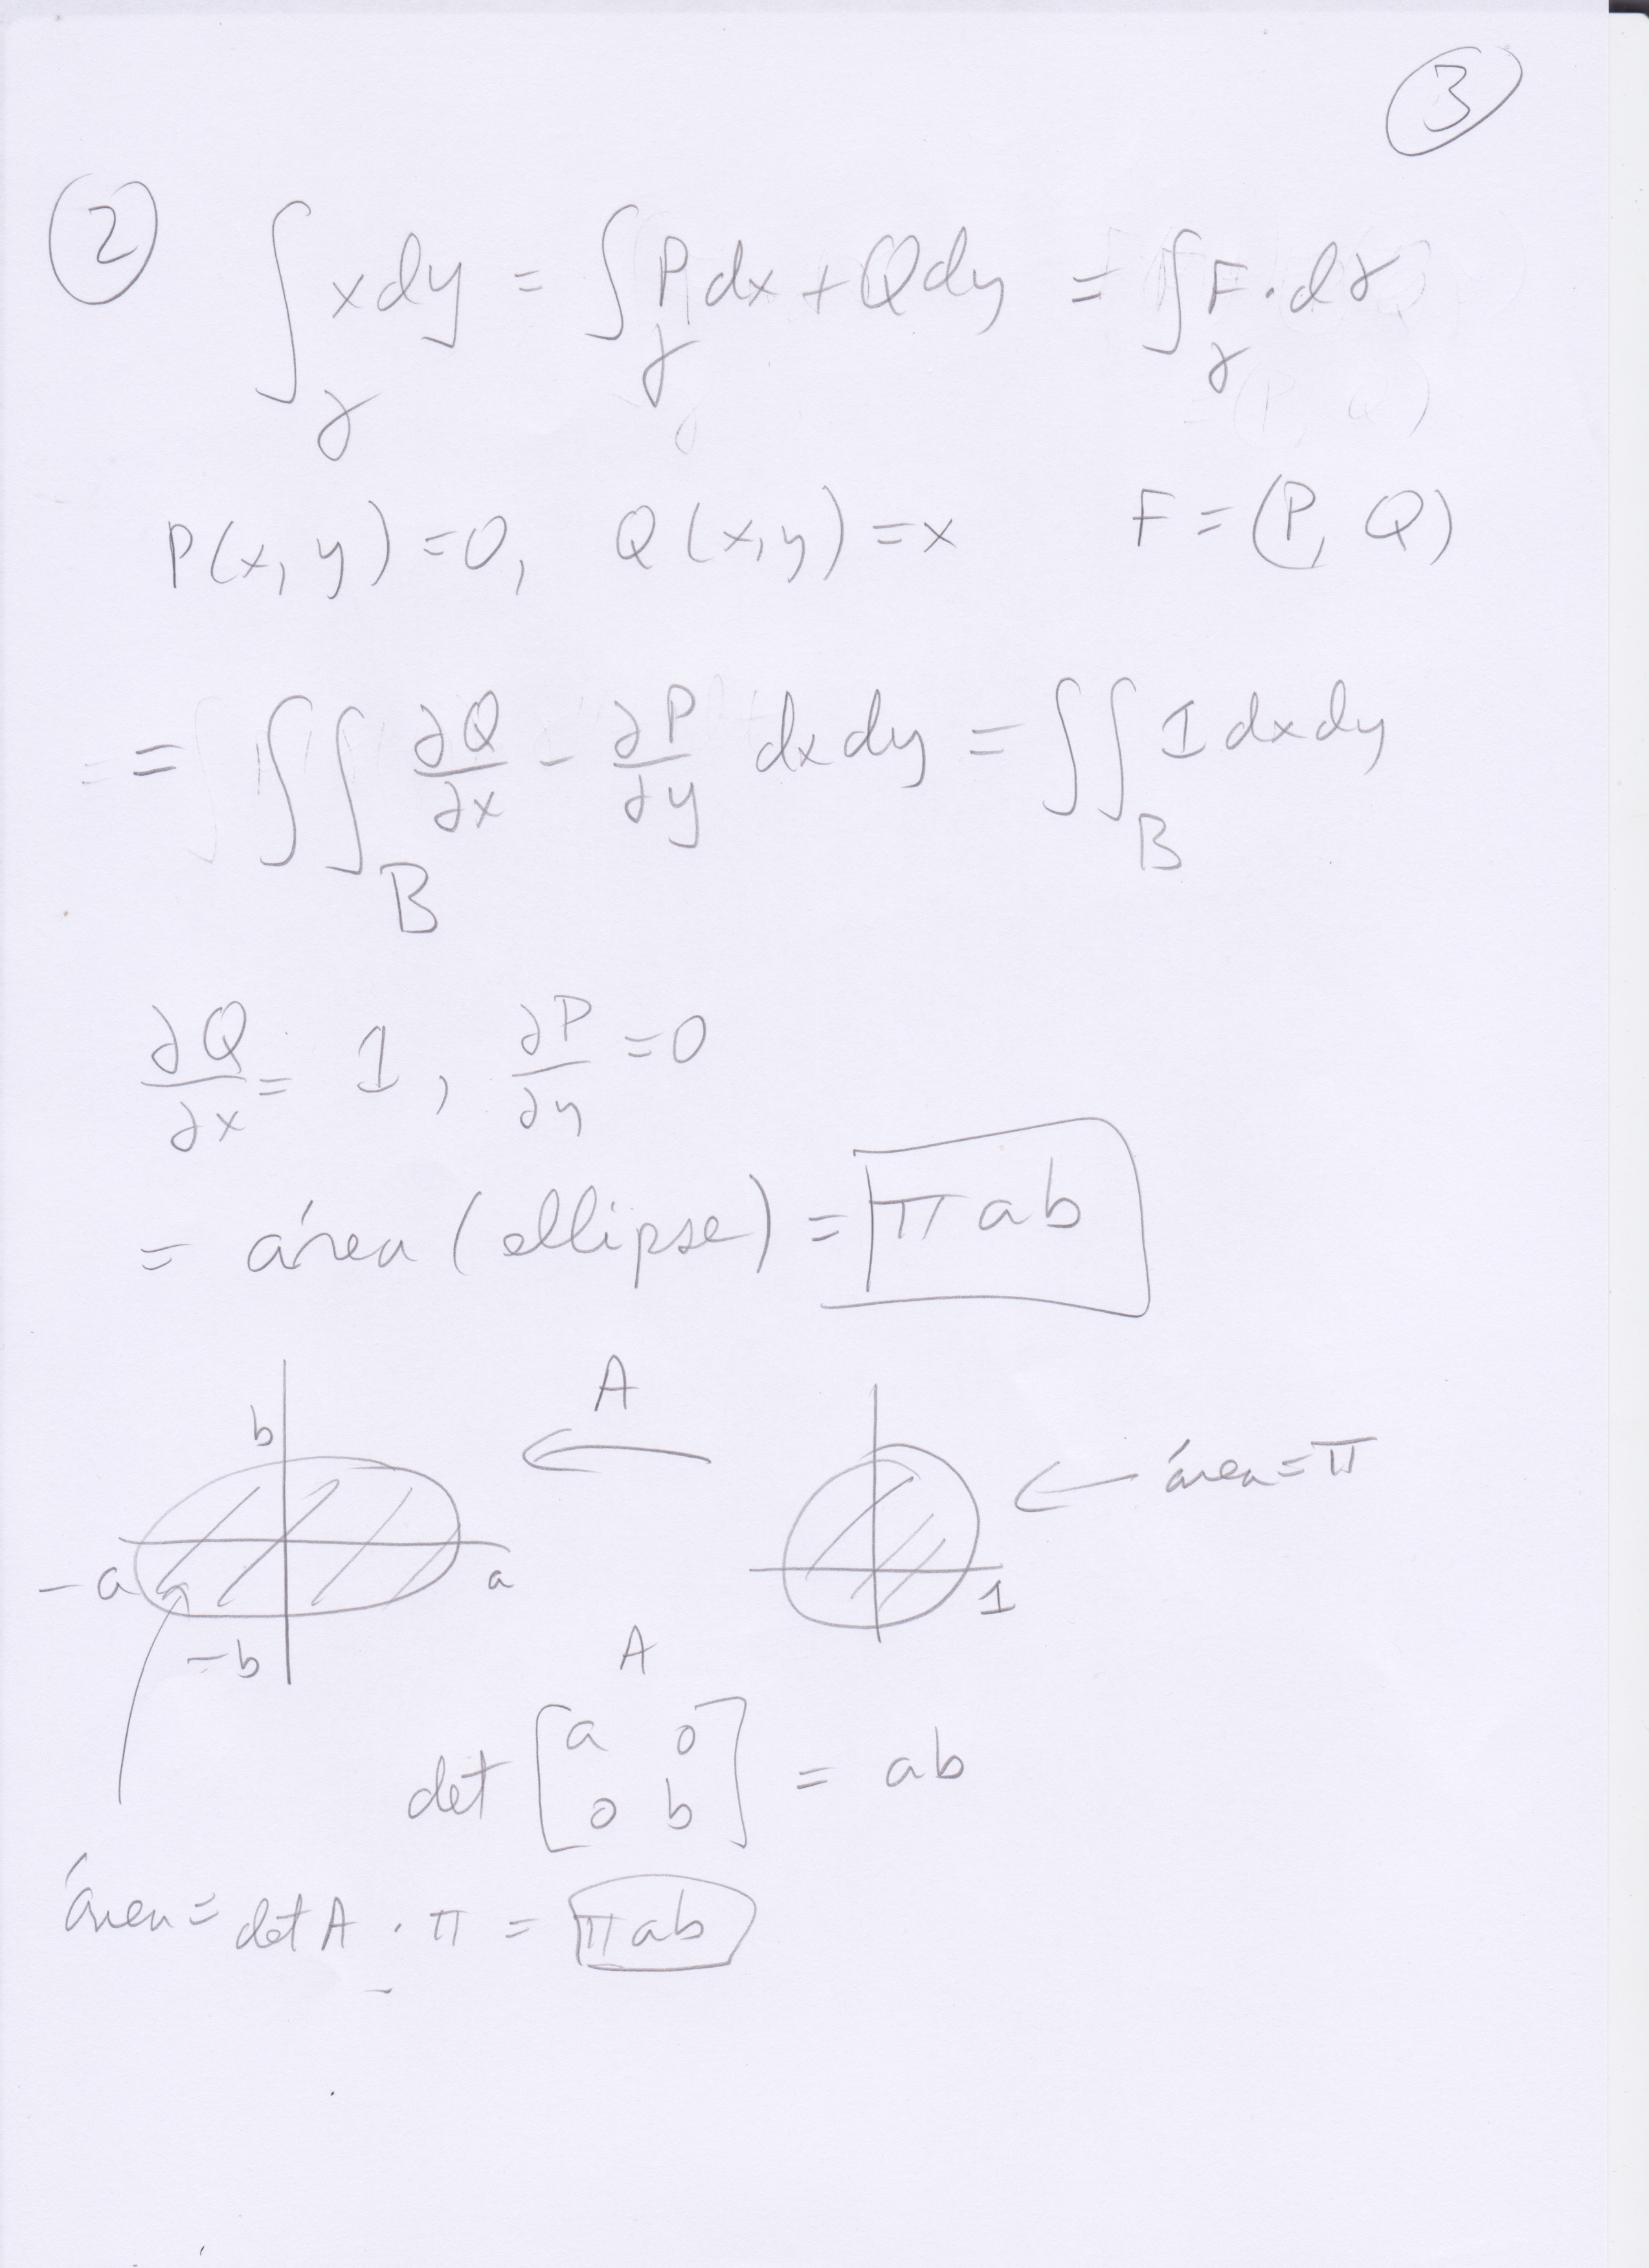 3
2 ∫_γ xdy = ∫_γ Pdx + Qdy = ∫_γ F·dγ
P(x, y) = 0, Q(x,y) = x F = (P, Q)
= ∫∫_B ∂Q/∂x - ∂P/∂y dxdy = ∫∫_B 1 dxdy
∂Q/∂x = 1, ∂P/∂y = 0
= área (ellipse) = πab
b A
área = π
-a a 1
-b A
det [a 0
0 b] = ab
área = det A · π = πab